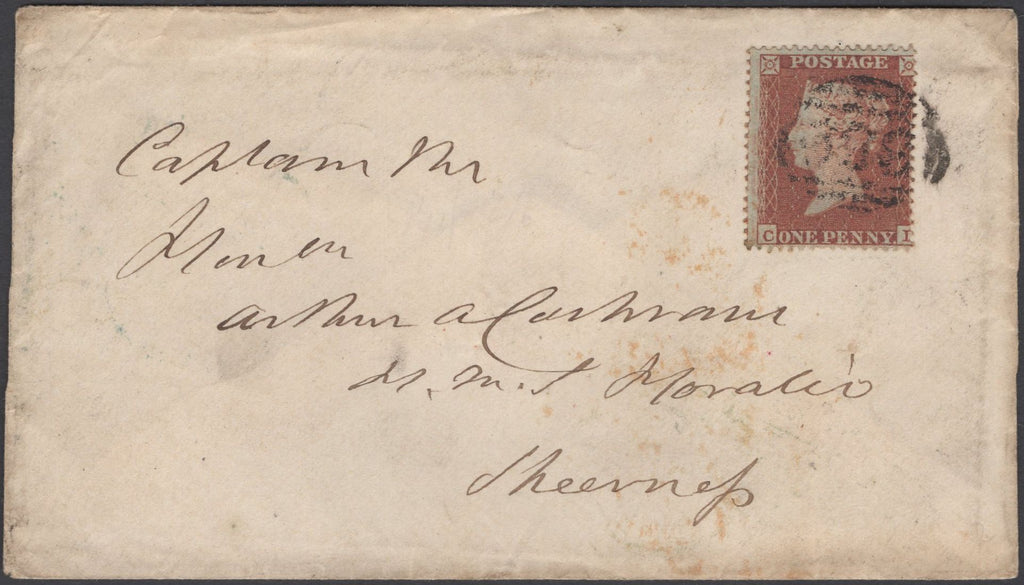 POSTAGE
C ONE PENNY I
Captain The
Honble
Arthur A Cochrane
H. M. S Horatio
Sheerness